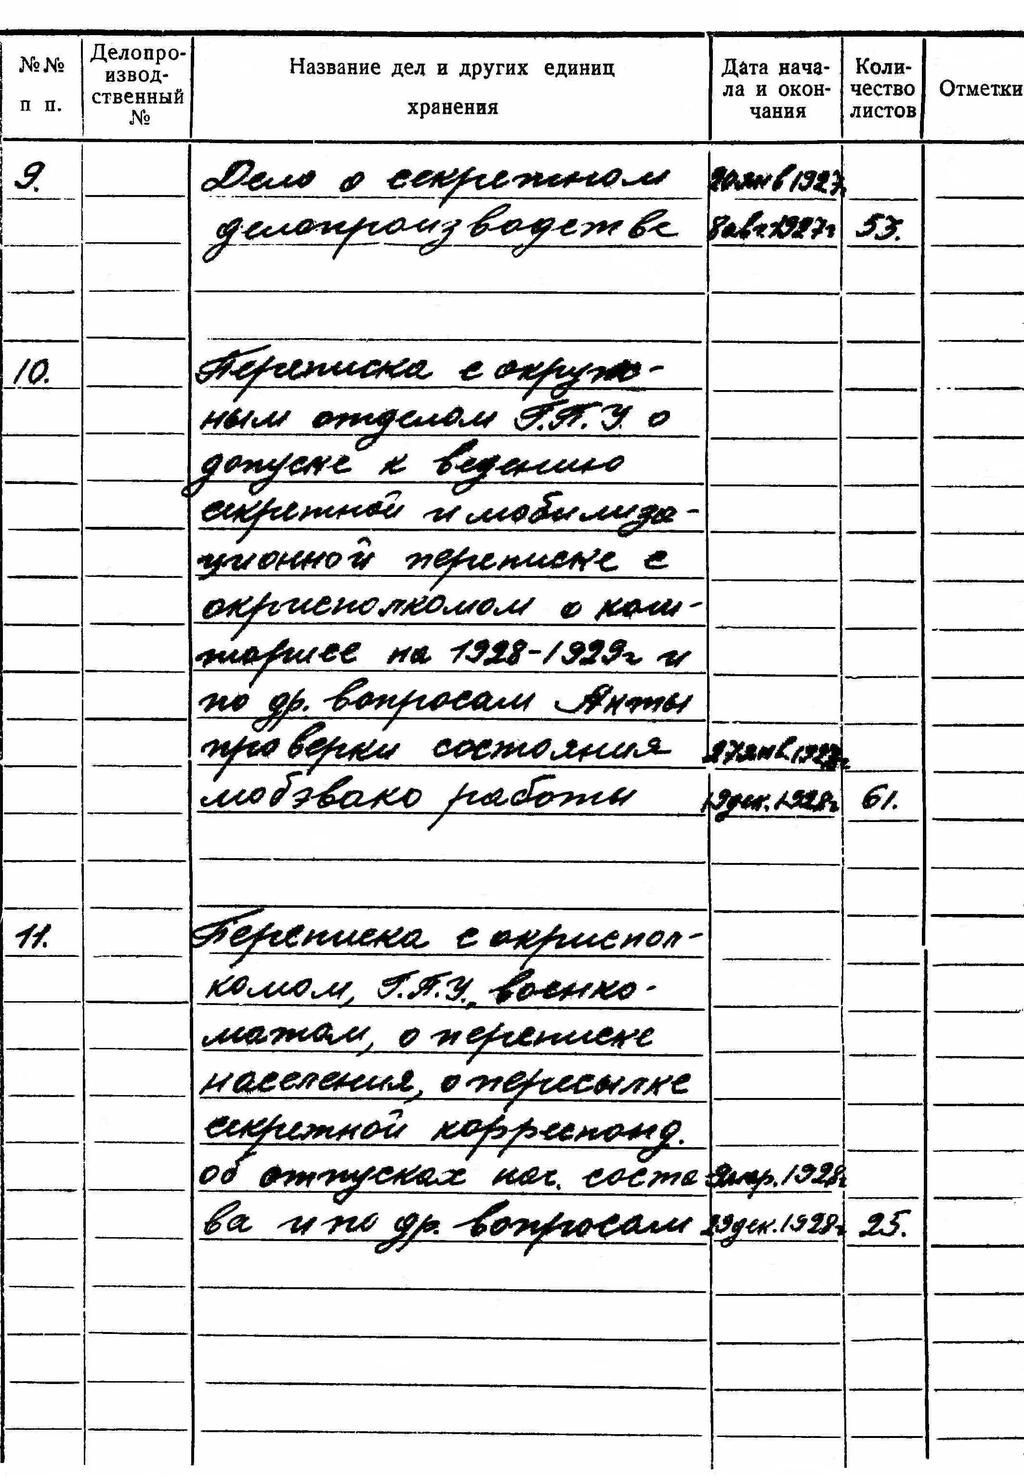 №№ п п.
Делопро-
извод-
ственный
№
Название дел и других единиц
хранения
Дата нача-
ла и окон-
чания
Коли-
чество
листов
Отметки
9. Дело о секретном 20 янв 1927г
делопроизводстве 8 авг. 1927г 53.
10. Переписка с окруж-
ным отделом Г.П.У. о
допуске к ведению
секретной и мобилиза-
ционной переписке с
окрисполкомом о
на 1928-1929г и
по др. вопросам Акты
проверки состояния 27 янв. 1927г
работы 19 дек. 1928г 61.
11. Переписка с окриспол-
комом, Г.П.У., военко-
матом, о переписке
населения, о пересылке
секретной корреспонд.
об отпусках нач. соста 1928г
ва и по др. вопросам 29 дек. 1928г 25.